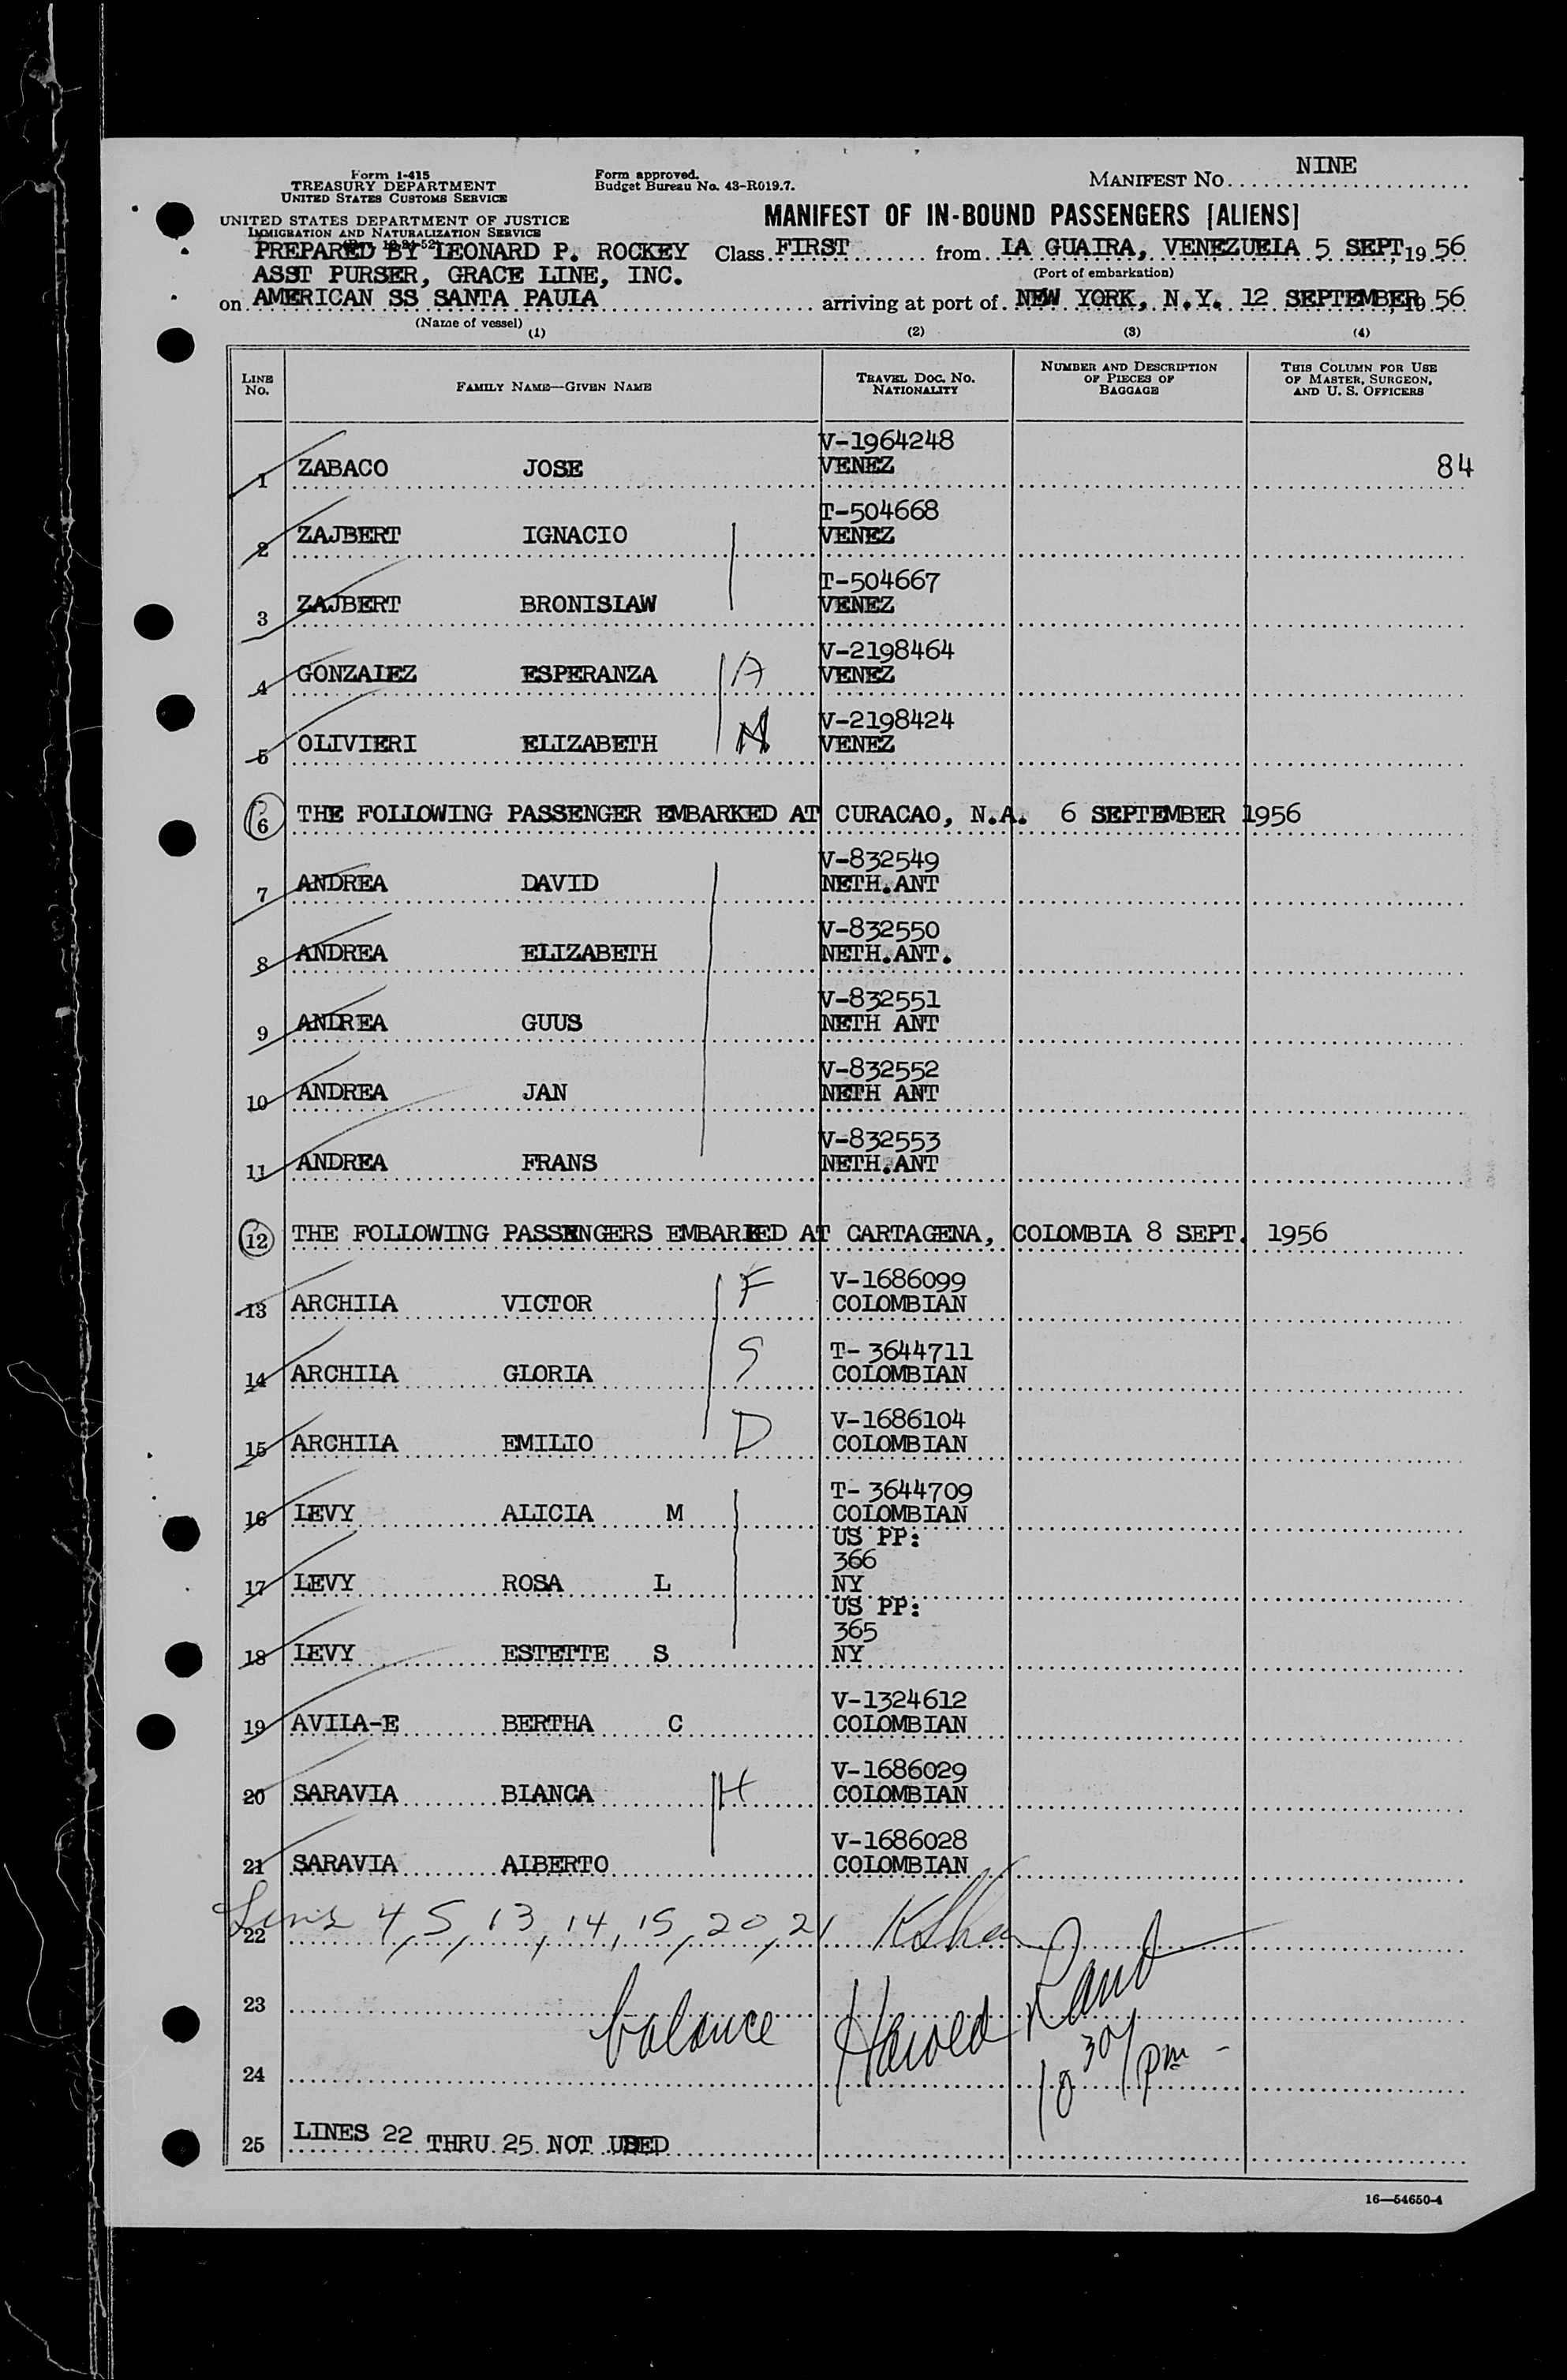 NINE
Form I-415
TREASURY DEPARTMENT
UNITED STATES CUSTOMS SERVICE
Form approved.
Budget Bureau No. 43-R019.7.
MANIFEST NO.
UNITED STATES DEPARTMENT OF JUSTICE
IMMIGRATION AND NATURALIZATION SERVICE
MANIFEST OF IN-BOUND PASSENGERS [ALIENS]
PREPARED BY LEONARD P. ROCKEY
ASST PURSER, GRACE LINE, INC.
Class FIRST from LA GUAIRA, VENEZUELA 5 SEPT, 19 56
(Port of embarkation)
on AMERICAN SS SANTA PAULA arriving at port of NEW YORK, N.Y. 12 SEPTEMBER, 19 56
(Name of vessel)
(1) (2) (3) (4)
LINE NO. FAMILY NAME—GIVEN NAME TRAVEL DOC. NO. NATIONALITY NUMBER AND DESCRIPTION OF PIECES OF BAGGAGE THIS COLUMN FOR USE OF MASTER, SURGEON, AND U. S. OFFICERS
V-1964248
1 ZABACO JOSE VENEZ 84
T-504668
2 ZAJBERT IGNACIO VENEZ
T-504667
3 ZAJBERT BRONISLAW VENEZ
V-2198464
4 GONZALEZ ESPERANZA A VENEZ
V-2198424
5 OLIVIERI ELIZABETH VENEZ
6 THE FOLLOWING PASSENGER EMBARKED AT CURACAO, N.A. 6 SEPTEMBER 1956
V-832549
7 ANDREA DAVID NETH.ANT
V-832550
8 ANDREA ELIZABETH NETH.ANT.
V-832551
9 ANDREA GUUS NETH ANT
V-832552
10 ANDREA JAN NETH ANT
V-832553
11 ANDREA FRANS NETH.ANT
12 THE FOLLOWING PASSENGERS EMBARKED AT CARTAGENA, COLOMBIA 8 SEPT. 1956
V-1686099
13 ARCHILA VICTOR F COLOMBIAN
T- 3644711
14 ARCHILA GLORIA S COLOMBIAN
V-1686104
15 ARCHILA EMILIO D COLOMBIAN
T- 3644709
16 LEVY ALICIA M COLOMBIAN
US PP:
366
17 LEVY ROSA L NY
US PP:
365
18 LEVY ESTETTE S NY
V-1324612
19 AVILA-E BERTHA C COLOMBIAN
V-1686029
20 SARAVIA BLANCA H COLOMBIAN
V-1686028
21 SARAVIA ALBERTO COLOMBIAN
22 Lines 4, 5, 13, 14, 15, 20, 21
23 balance Harold Rand
24 10 30/pm -
25 LINES 22 THRU 25 NOT USED
16—54650-4